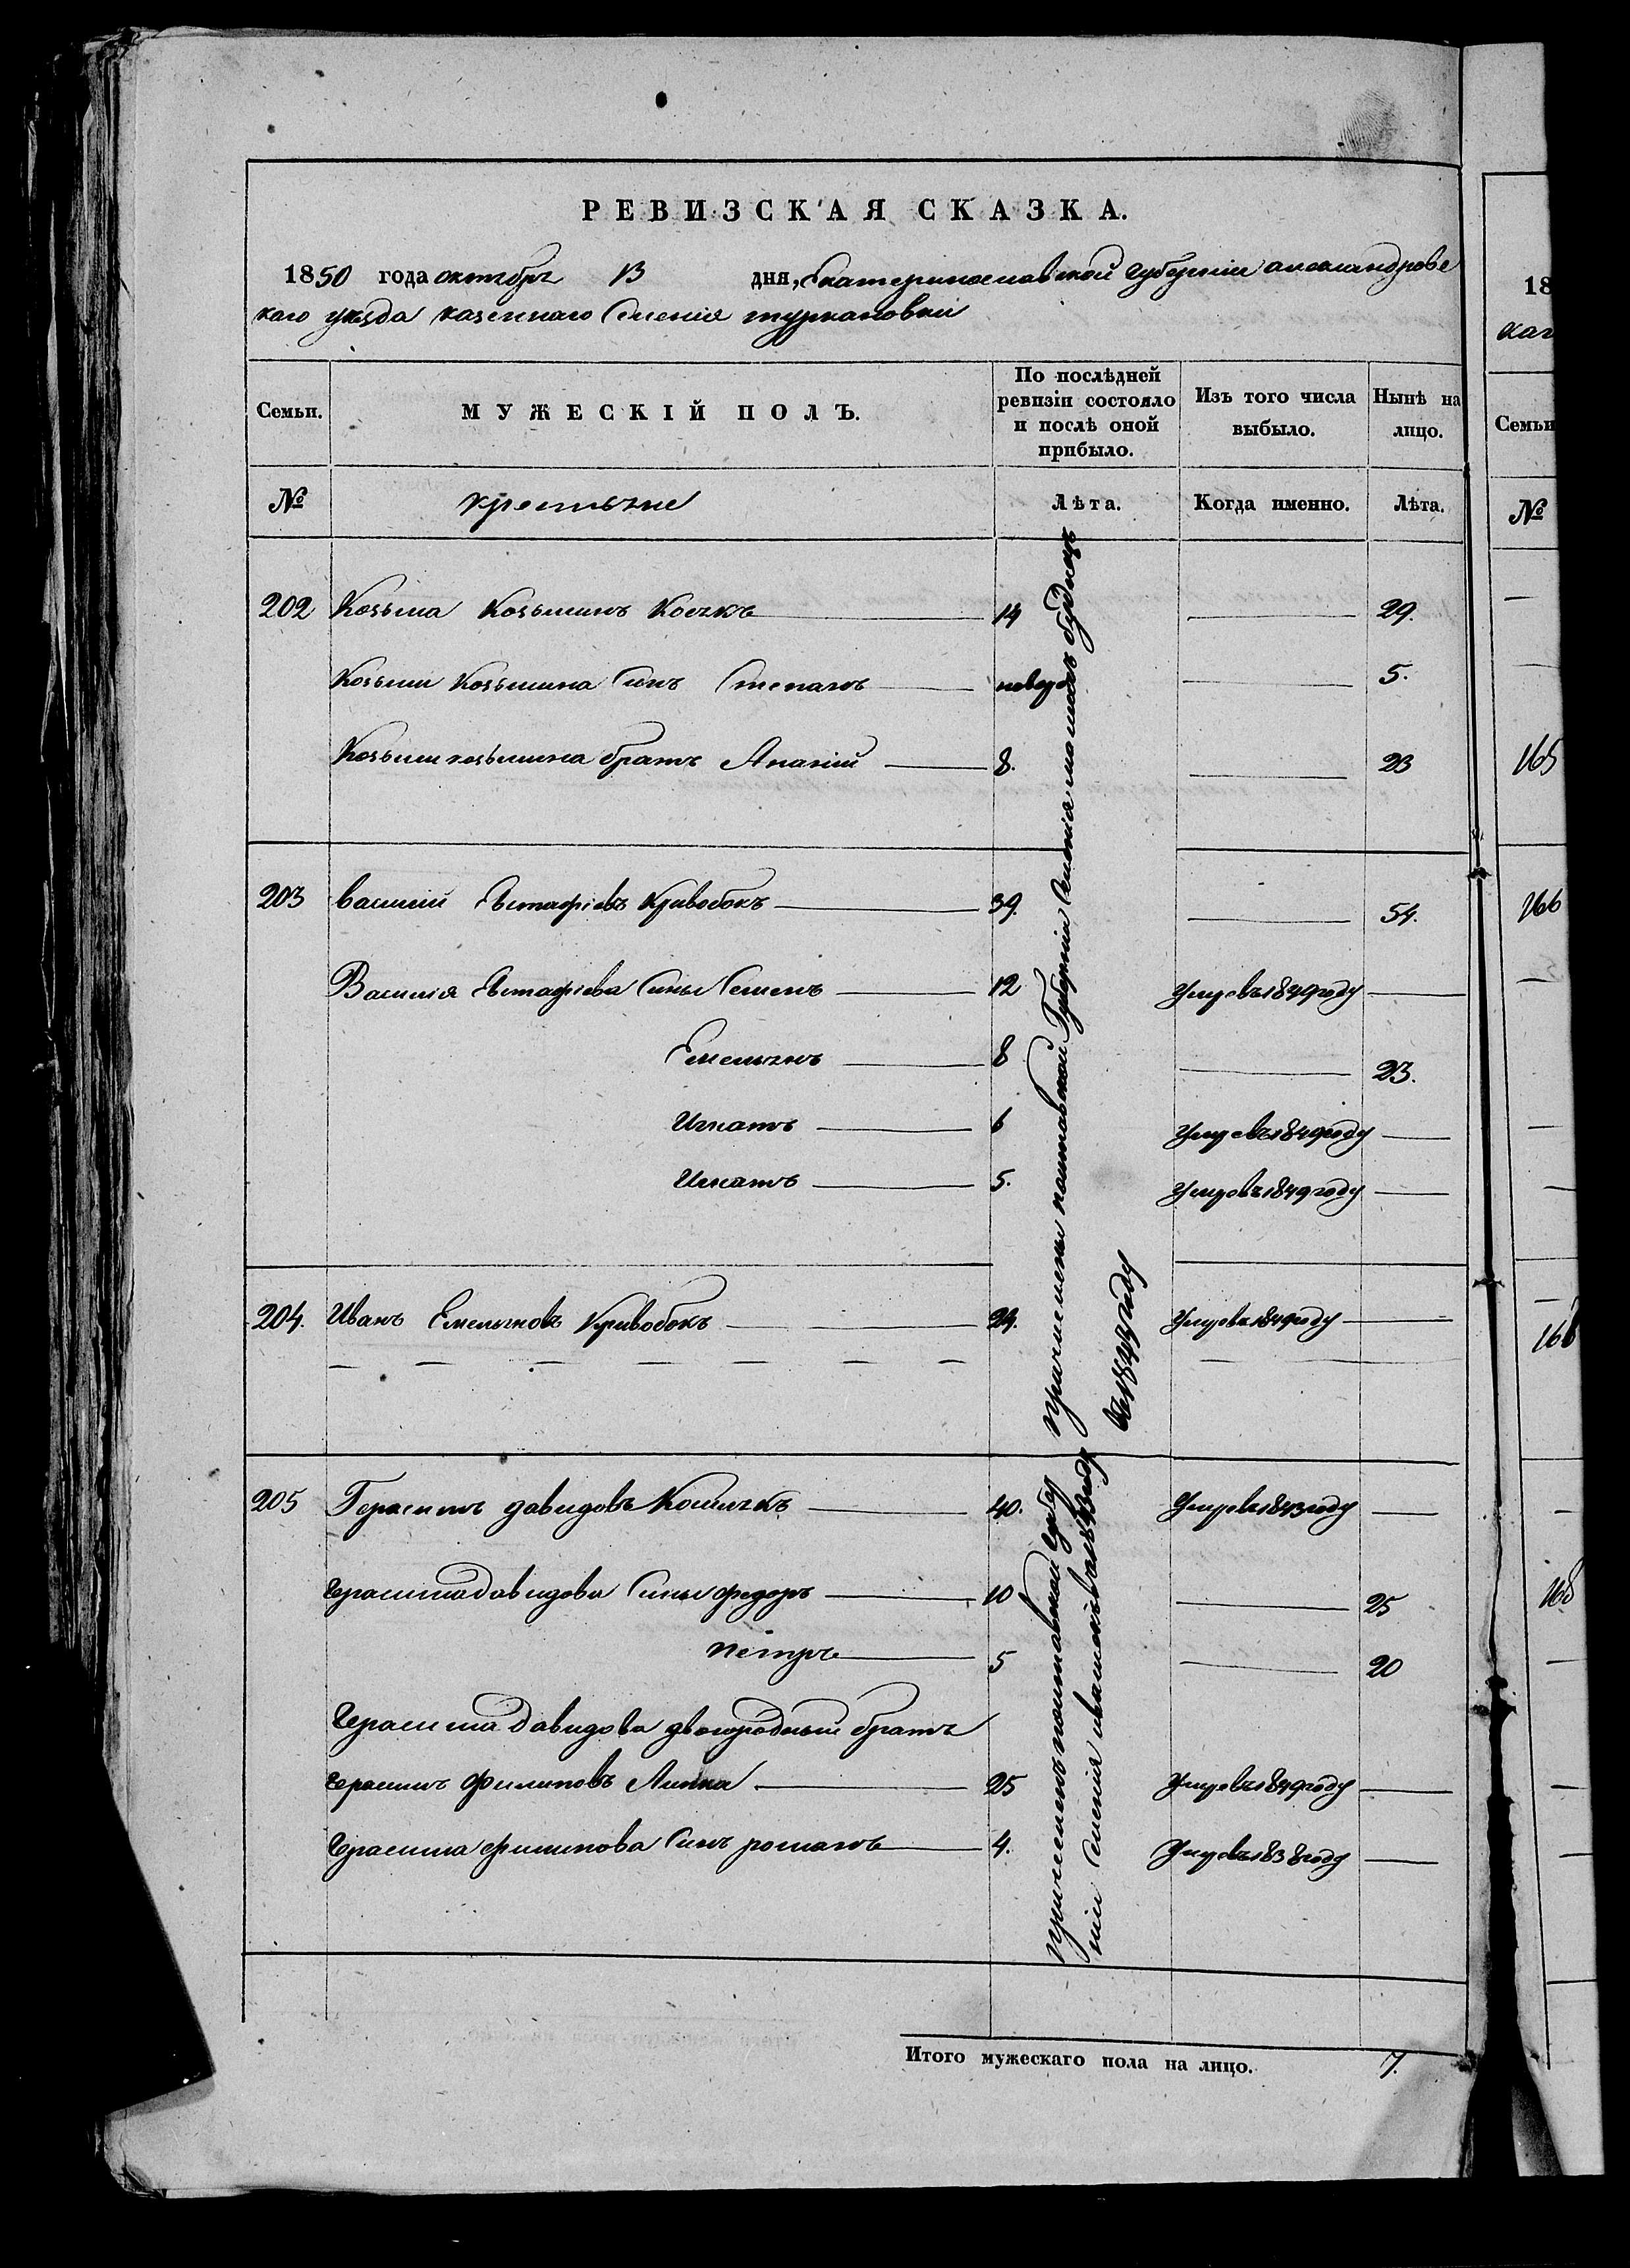 РЕВИЗСКАЯ СКАЗКА.
1850 года октября 13 дня, Екатеринославской губернии александровс
каго уезда казеннаго Селения туркановки
Семьи. МУЖЕСКІЙ ПОЛЪ. По послѣдней ревизіи состояло и послѣ оной прибыло. Изъ того числа выбыло. Нынѣ на лицо.
№ крестьяне Лѣта. Когда именно. Лѣта.
202 Козьма Козьминъ 14 29.
Козьми Козьмина Синъ Степанъ новорож 5.
Козьми козьмина братъ Ананій 8. 23
203 василий Евстафіевъ Кривобокъ 39. 54.
Василия Евстафіева Сины Семенъ 12 Умеръ въ 1849 году
Емельянъ 8 23.
Игнатъ 6 Умеръ въ 1849 году
Игнатъ 5. Умеръ въ 1849 году
204. Иванъ Емельяновъ Кривобокъ 24. Умеръ въ 1849 году
причислены полтавской Губернии Селения
въ 1844 году
205 Герасимъ давидовъ 40. Умеръ въ 1843 году
герасима давидова Сины федоръ 10 25
петръ 5 20
герасима давидова двоюродный братъ
герасимъ филиповъ 25 Умеръ въ 1849 году
герасима филипова Синъ романъ 4. Умеръ въ 1838 году
причисленъ полтавской губер
нии Селения
Итого мужескаго пола на лицо. 7.
18
каг
Семьи
№
165
166